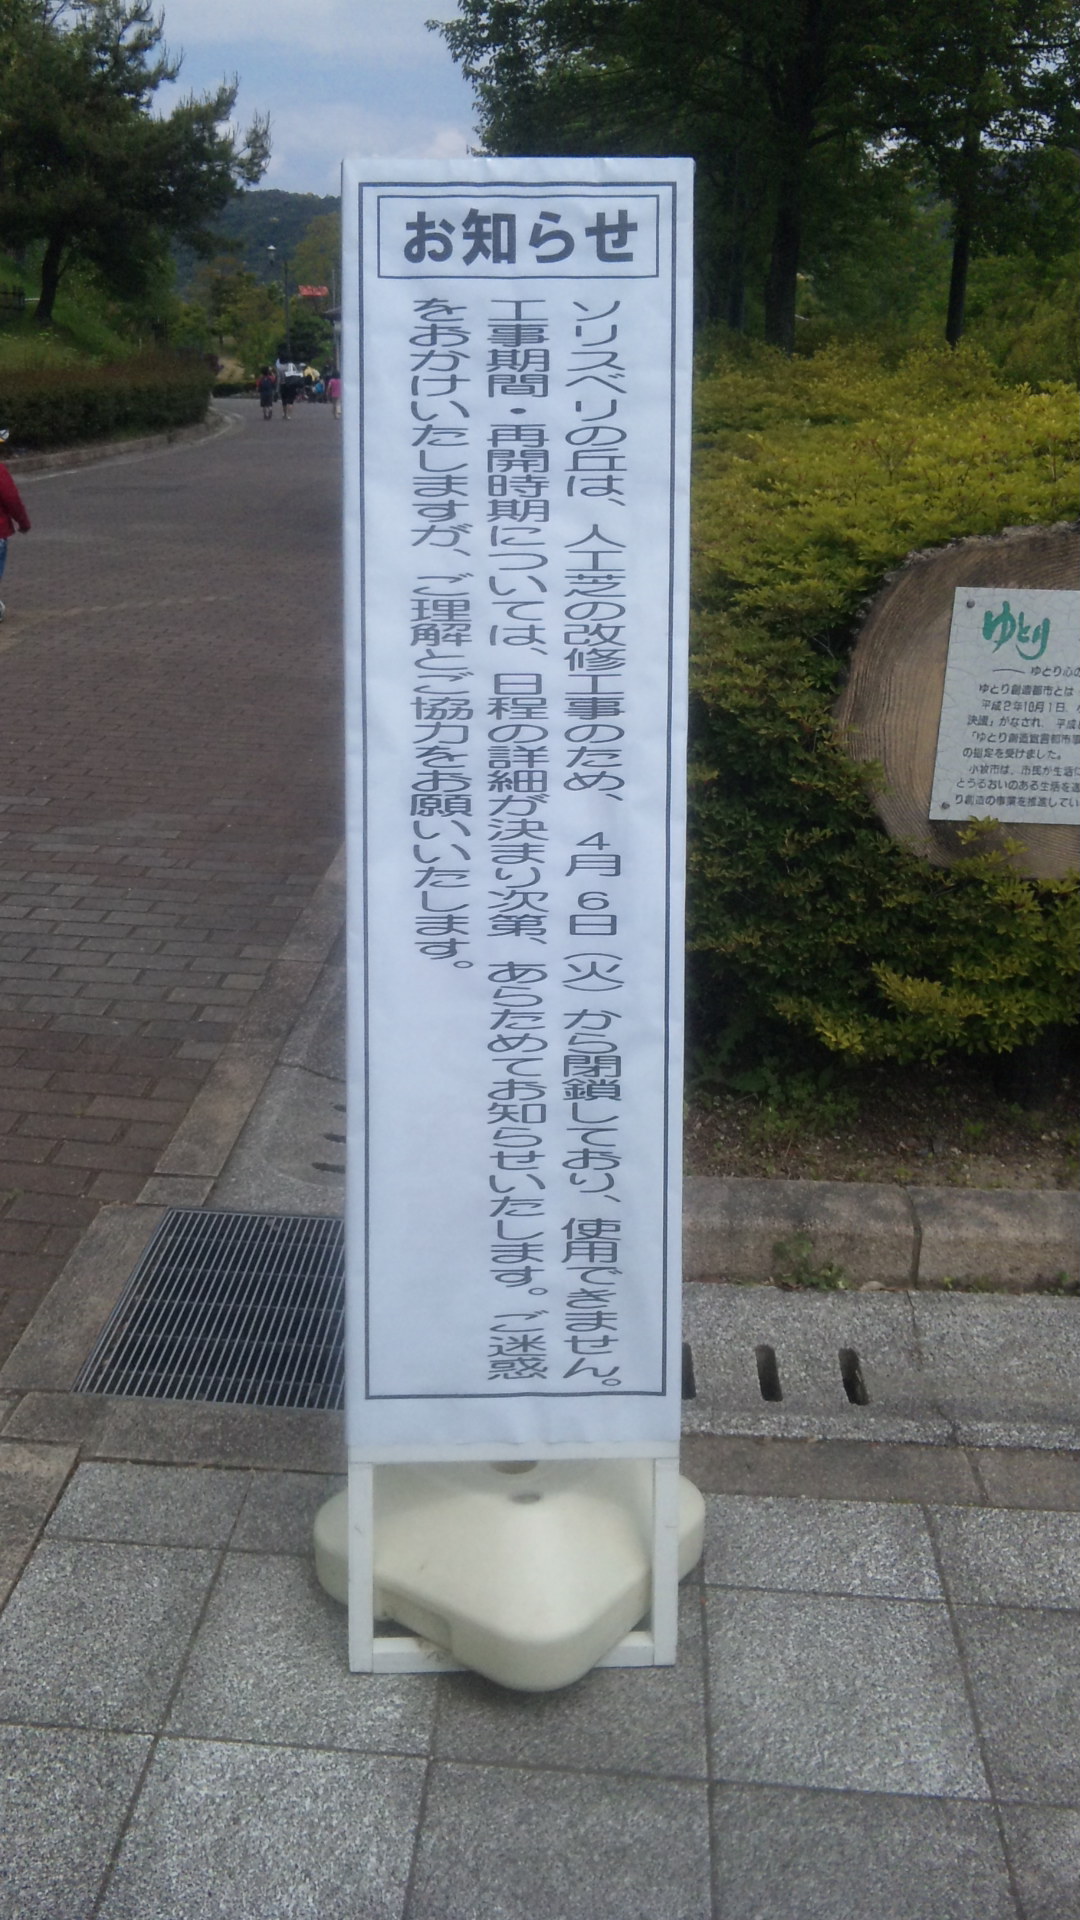 お知らせ
ソリスベリの丘は、人工芝の改修工事のため、4月6日(火)から閉鎖しており、使用できません。
工事期間・再開時期については、日程の詳細が決まり次第、あらためてお知らせいたします。ご迷惑
をおかけいたしますが、ご理解とご協力をお願いいたします。
ゆとり
ゆとり心の
ゆとり創造都市とは
平成2年10月1日、
決議」がなされ、平成
「ゆとり創造宣言都市
の指定を受けました。
小牧市は、市民が生活
とうるおいのある生活を
り創造の事業を推進してい